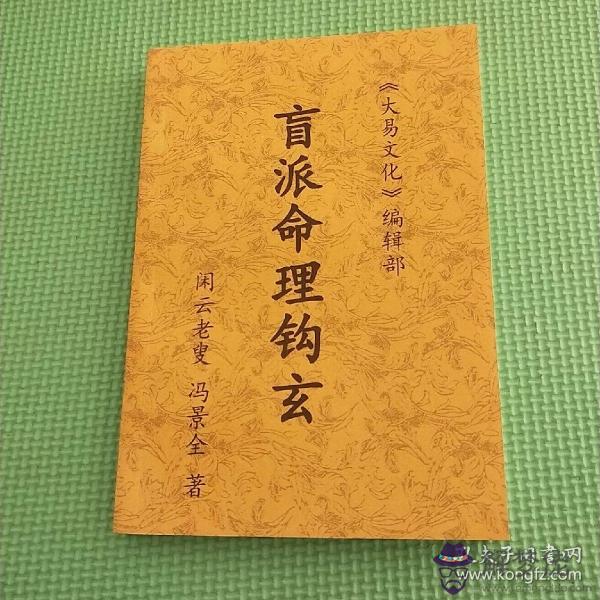 《大易文化》编辑部
盲派命理钩玄
闲云老叟 冯景全 著
孔夫子旧书网
www.kongfz.com